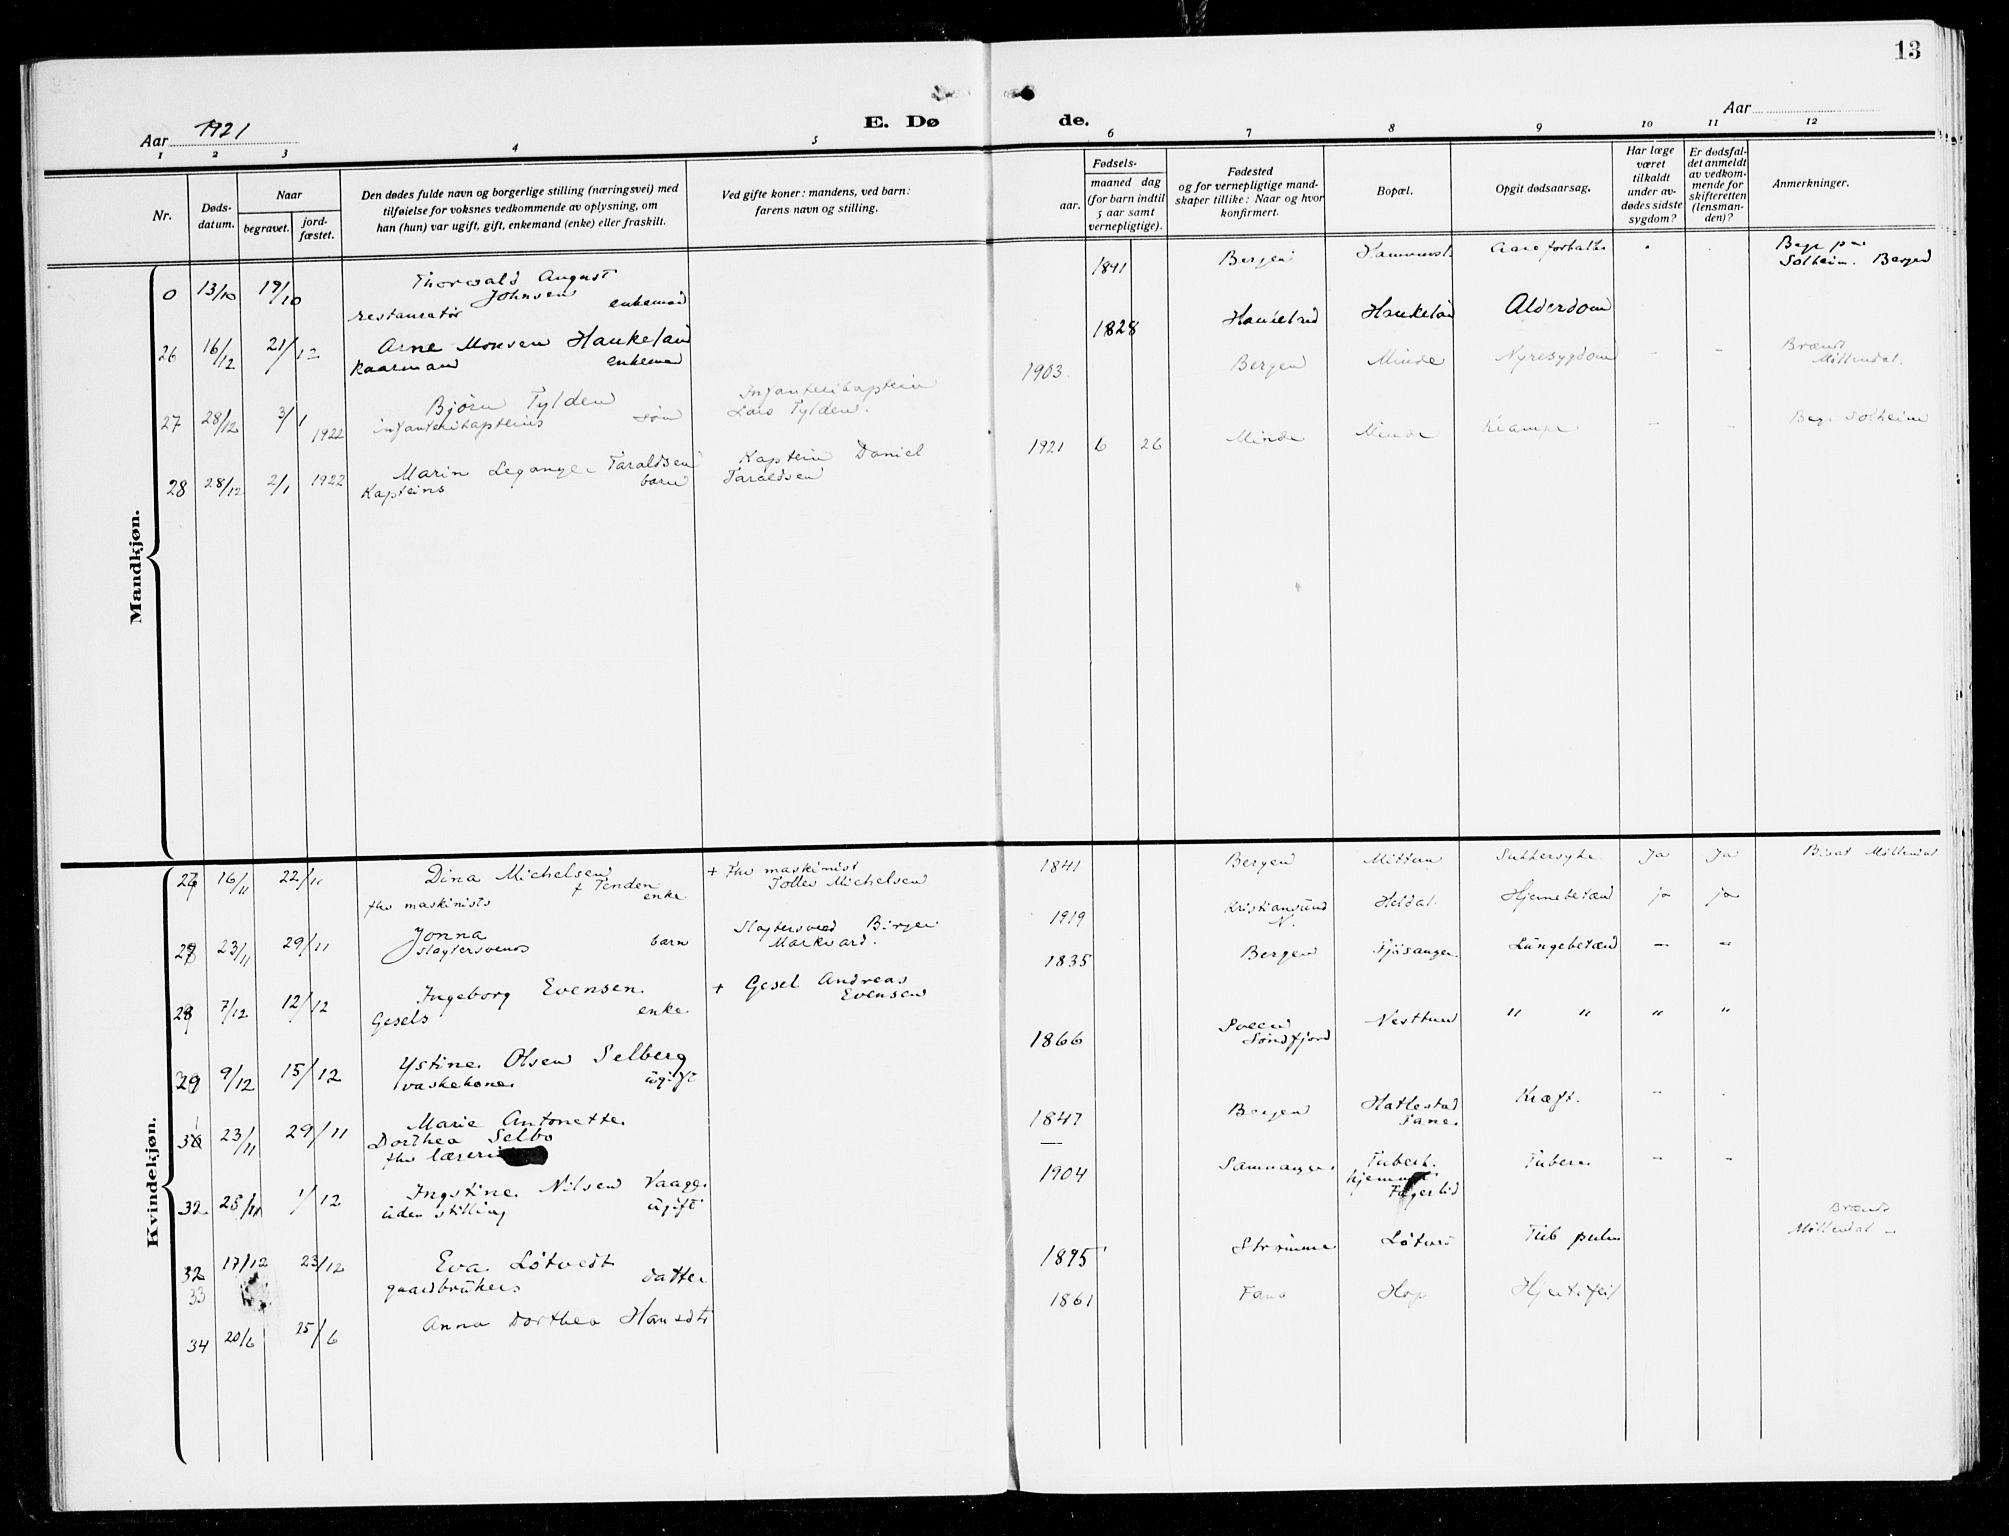 13
Aar 1921
E. Dø
de.
Aar
1 2 3 4 5 6 7 8 9 10 11 12
Nr.
Døds-
datum.
Naar
begravet.
jord-
fæstet.
Den dødes fulde navn og borgerlige stilling (næringsvei) med
tilføielse for voksnes vedkommende av oplysning, om
han (hun) var ugift, gift, enkemand (enke) eller fraskilt.
Ved gifte koner: mandens, ved barn:
farens navn og stilling.
Fødsels-
aar.
maaned dag
(for barn indtil
5 aar samt
vernepligtige).
Fødested
og for vernepligtige mand-
skaper tillike: Naar og hvor
konfirmert.
Bopæl.
Opgit dødsaarsag.
Har læge
været
tilkaldt
under av-
dødes sidste
sygdom?
Er dødsfal-
det anmeldt
av vedkom-
mende for
skifteretten
(lensman-
den)?
Anmerkninger.
Mandkjøn.
0 13/10 19/10 Thorvald August
Johnsen
restauratør enkemand
1841 Bergen Aareforkalk.
Begr. på
Solheim. Bergen
26 16/12 21/12 Arne Monsen Haukeland
kaarmand enkemand
1828 Haukeland Haukeland Alderdom
27 28/12 3/1 1922 Bjørn Tylden
infanterikapteins søn
Infanterikaptein
Lars Tylden.
1903 Bergen Minde Nyresygdom - -
Brændt
Møllendal.
28 28/12 2/1 1922 Marin Leganger Taraldsen
Kapteins barn
Kaptein Daniel
Taraldsen
1921 6 26 Minde Minde Krampe - - Begr. Solheim
Kvindekjøn.
26 16/11 22/11 Dina Michelsen
f Tenden
fhv maskinists enke
+ Fhv maskinist
Tollev Michelsen
1841 Bergen Mittun Sukkersyke Ja Ja Bisat Møllendal
27 23/11 29/11 Jonna
slagtersvends barn
Slagtersvend Birger
Markvard.
1919 Kristiansund
N. Heldal Hjernebetænd ja ja
28 7/12 12/12 Ingeborg Evensen
Gesels enke
+ Gesel Andreas
Evensen
1835 Bergen Fjøsanger Lungebetænd - -
29 9/12 15/12 Ystine Olsen Selberg
vaskekone ugift
1866
Søndfjord Nesttun " " " "
30 23/11 29/11 Marie Antonette
Dorthea Selbo
fhv
1847 Bergen
Fane Kræft. -
32 25/11 1/12 Ingstine Nilsen Vaage
uden stilling ugift
1904 Samnanger Tuberk.
hjemmet
Fagerlid Tuberc - -
32
33 17/12 23/12 Eva Løtvedt
gaardbrukers datter
1895 Straume Løtved Tub pulm
Brændt
Møllendal -
34 20/6 25/6 Anna Dorthea Hansdtr
1861 Fana Hop Hjertefeil